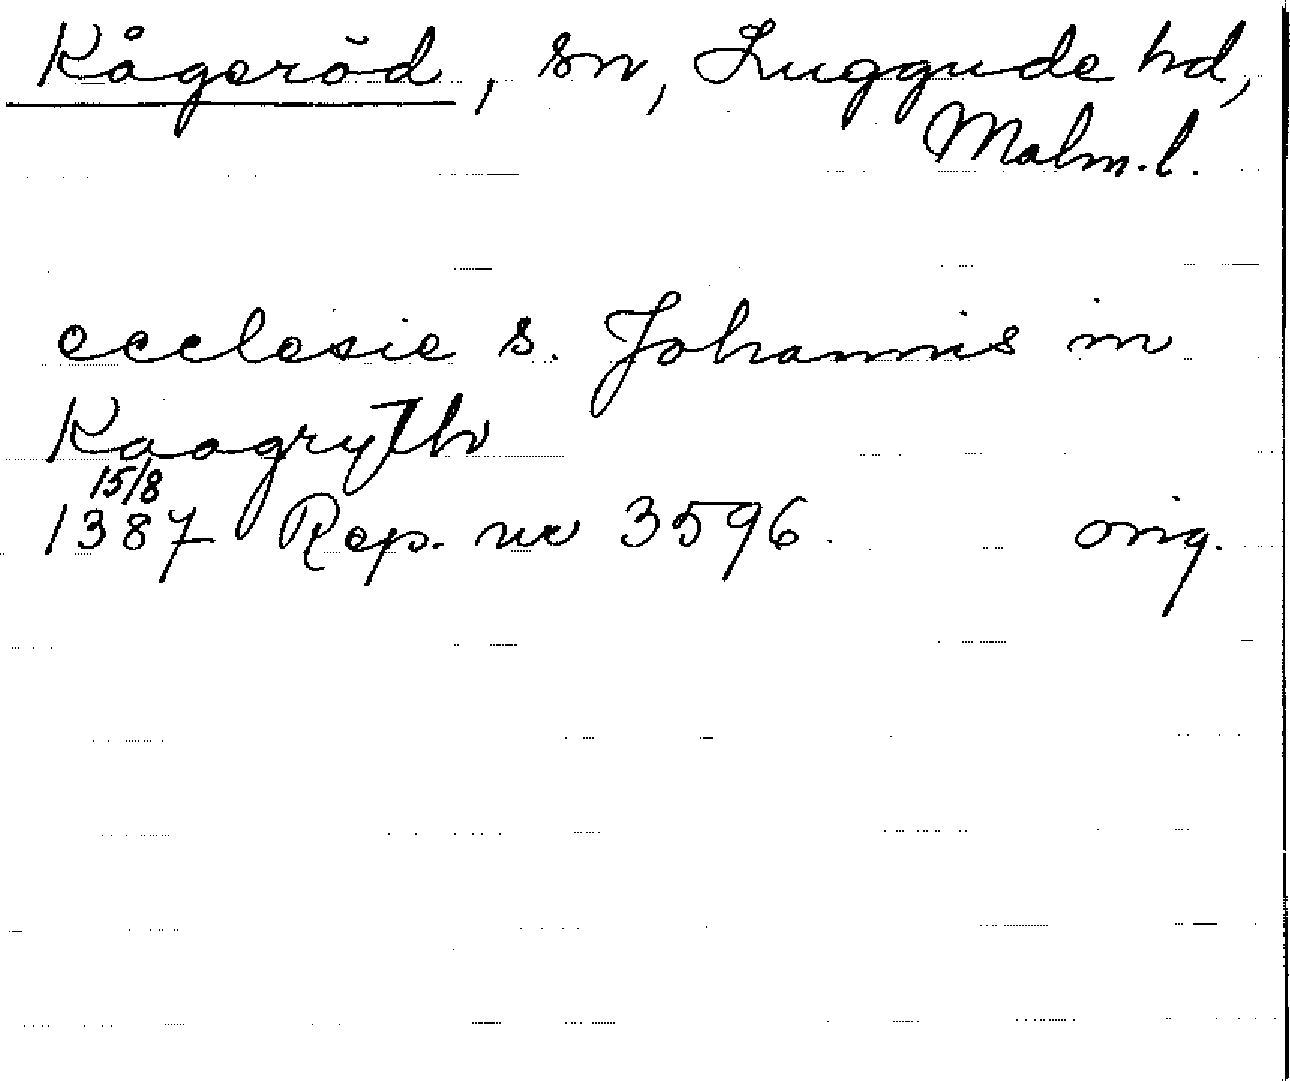 Kågeröd, sn, Luggude hd,
Malm.l.
ecclesie s. Johannis in
Kaagrythv
15/8
1387 Rep. nr 3596 orig.